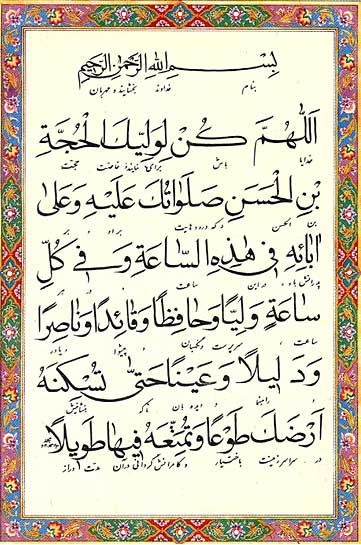 بِسْمِ اللهِ الرَّحْمٰنِ الرَّحِيمِ
بنام خداوند بخشاینده مهربان
اَللّٰهُمَّ كُنْ لِوَلِيِّكَ الْحُجَّةِ
خدایا باش برای حجتت
بْنِ الْحَسَنِ صَلَواتُكَ عَلَيْهِ وَعَلىٰ
بن الحسن که درودهایت بر او و بر
ابائِهِ فى هٰذِهِ السّاعَةِ وَفى كُلِّ
پدرانش باد در این ساعت و در هر
ساعَةٍ وَلِيًّا وَحافِظًا وَقائِدًا وَناصِرًا
ساعت سرپرست و نگهبان و پیشوا و یاور
وَدَليلاً وَعَيْنًا حَتّىٰ تُسْكِنَهُ
و راهنما و دیده بان تا که
اَرْضَكَ طَوْعًا وَتُمَتِّعَهُ فيها طَويلاً
در سراسر زمینت با اختیار و کامرانش گردانی در آن مدت دراز